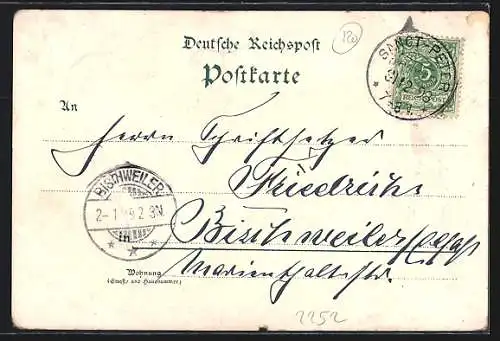 120
Deutsche Reichspost
Postkarte
SANCT-PETER
5
An
Herrn Schriftsetzer
Friedrich
BISCHWEILER
2-1
Bischweiler Elsass
Marienthalerstr.
Wohnung
(Straße und Hausnummer)
2252